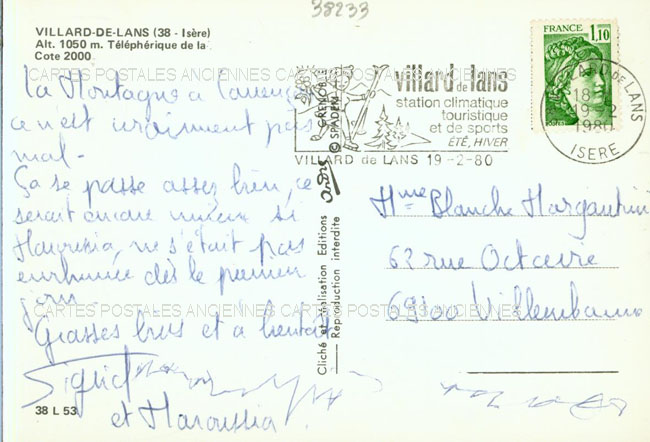 38233
VILLARD-DE-LANS (38 - Isère)
Alt. 1050 m. Téléphérique de la
Cote 2000
CARTES POSTALES ANCIENNES CARTES POSTALES ANCIENNES CARTES POSTALES ANCIENNES
La Montagne a
ce n'est vraiment pas
mal -
Ça se passe assez bien, ce
serait encore mieux si
Haroussia, ne s'était pas
enrhumée dès le premier
jour.
CARTES POSTALES ANCIENNES CARTES POSTALES ANCIENNES CARTES POSTALES ANCIENNES
Grosses bises et à bientôt
et Haroussia
38 L 53
villard de lans
station climatique
touristique
et de sports
ÉTÉ, HIVER
VILLARD de LANS 19-2-80
FRANCE
1,10
DE LANS
18
19-2
1980
ISERE
GRENOBLE
© SPADEM
Cliché et Réalisation Editions
Reproduction interdite
Mme Blanche
62 rue Octavie
69100 Villeurbanne